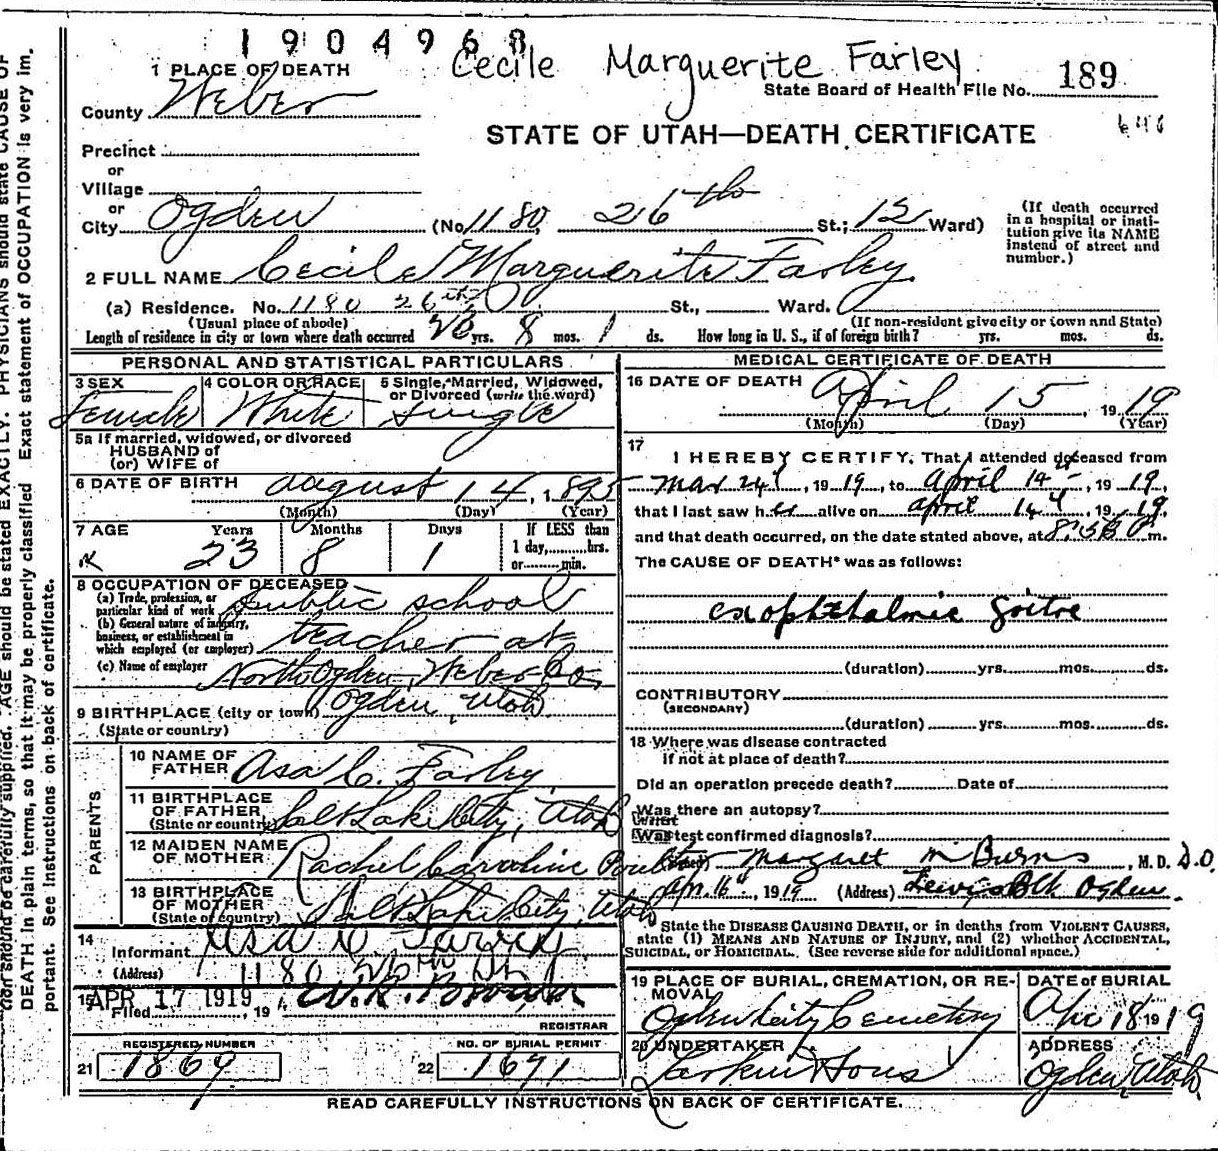 1904968
Cecile Marguerite Farley
1 PLACE OF DEATH
State Board of Health File No. 189
County Weber
STATE OF UTAH—DEATH CERTIFICATE
Precinct
or
Village
or
City Ogden (No. 1180 26th St.; 12 Ward)
(If death occurred in a hospital or institution give its NAME instead of street and number.)
2 FULL NAME Cecile Marguerite Farley
(a) Residence. No. 1180 26th St., Ward.
(Usual place of abode) (If non-resident give city or town and State)
Length of residence in city or town where death occurred yrs. 8 mos. 1 ds. How long in U. S., if of foreign birth? yrs. mos. ds.
PERSONAL AND STATISTICAL PARTICULARS
3 SEX Female
4 COLOR OR RACE White
5 Single, Married, Widowed, or Divorced (write the word) Single
5a If married, widowed, or divorced
HUSBAND of
(or) WIFE of
6 DATE OF BIRTH August 14, 1895
(Month) (Day) (Year)
7 AGE Years Months Days If LESS than
23 8 1 1 day,.....hrs.
or.....min.
8 OCCUPATION OF DECEASED
(a) Trade, profession, or particular kind of work public school
(b) General nature of industry, business, or establishment in which employed (or employer) teacher at
(c) Name of employer North Ogden, Weber Co.
9 BIRTHPLACE (city or town) Ogden, Utah
(State or country)
PARENTS
10 NAME OF FATHER Asa C. Farley
11 BIRTHPLACE OF FATHER (State or country) Salt Lake City, Utah
12 MAIDEN NAME OF MOTHER Rachel Caroline
13 BIRTHPLACE OF MOTHER (State or country) Salt Lake City, Utah
14 Informant Asa C Farley
(Address) 1180 26th St
15 Filed APR 17 1919, 19
REGISTRAR
REGISTERED NUMBER
21 1869
NO. OF BURIAL PERMIT
22 1671
MEDICAL CERTIFICATE OF DEATH
16 DATE OF DEATH April 15, 1919
(Month) (Day) (Year)
17 I HEREBY CERTIFY, That I attended deceased from
Mar 24, 1919, to April 14, 1919,
that I last saw her alive on April 14, 1919,
and that death occurred, on the date stated above, at m.
The CAUSE OF DEATH* was as follows:
exophthalmic goitre
(duration) yrs. mos. ds.
CONTRIBUTORY
(SECONDARY)
(duration) yrs. mos. ds.
18 Where was disease contracted
if not at place of death?
Did an operation precede death? Date of
Was there an autopsy?
What test confirmed diagnosis?
(Signed) Margaret M Burns, M.D. D.O.
Apr. 16, 1919 (Address) Lewis Blk Ogden.
State the DISEASE CAUSING DEATH, or in deaths from VIOLENT CAUSES,
state (1) MEANS AND NATURE OF INJURY, and (2) whether ACCIDENTAL,
SUICIDAL, or HOMICIDAL. (See reverse side for additional space.)
19 PLACE OF BURIAL, CREMATION, OR REMOVAL Ogden City Cemetery
DATE of BURIAL Apr 18 1919
20 UNDERTAKER Larkin & Sons
ADDRESS Ogden, Utah
READ CAREFULLY INSTRUCTIONS ON BACK OF CERTIFICATE.
AGE should be stated EXACTLY. PHYSICIANS should state CAUSE OF
DEATH in plain terms, so that it may be properly classified. Exact statement of OCCUPATION is very im-
portant. See instructions on back of certificate.